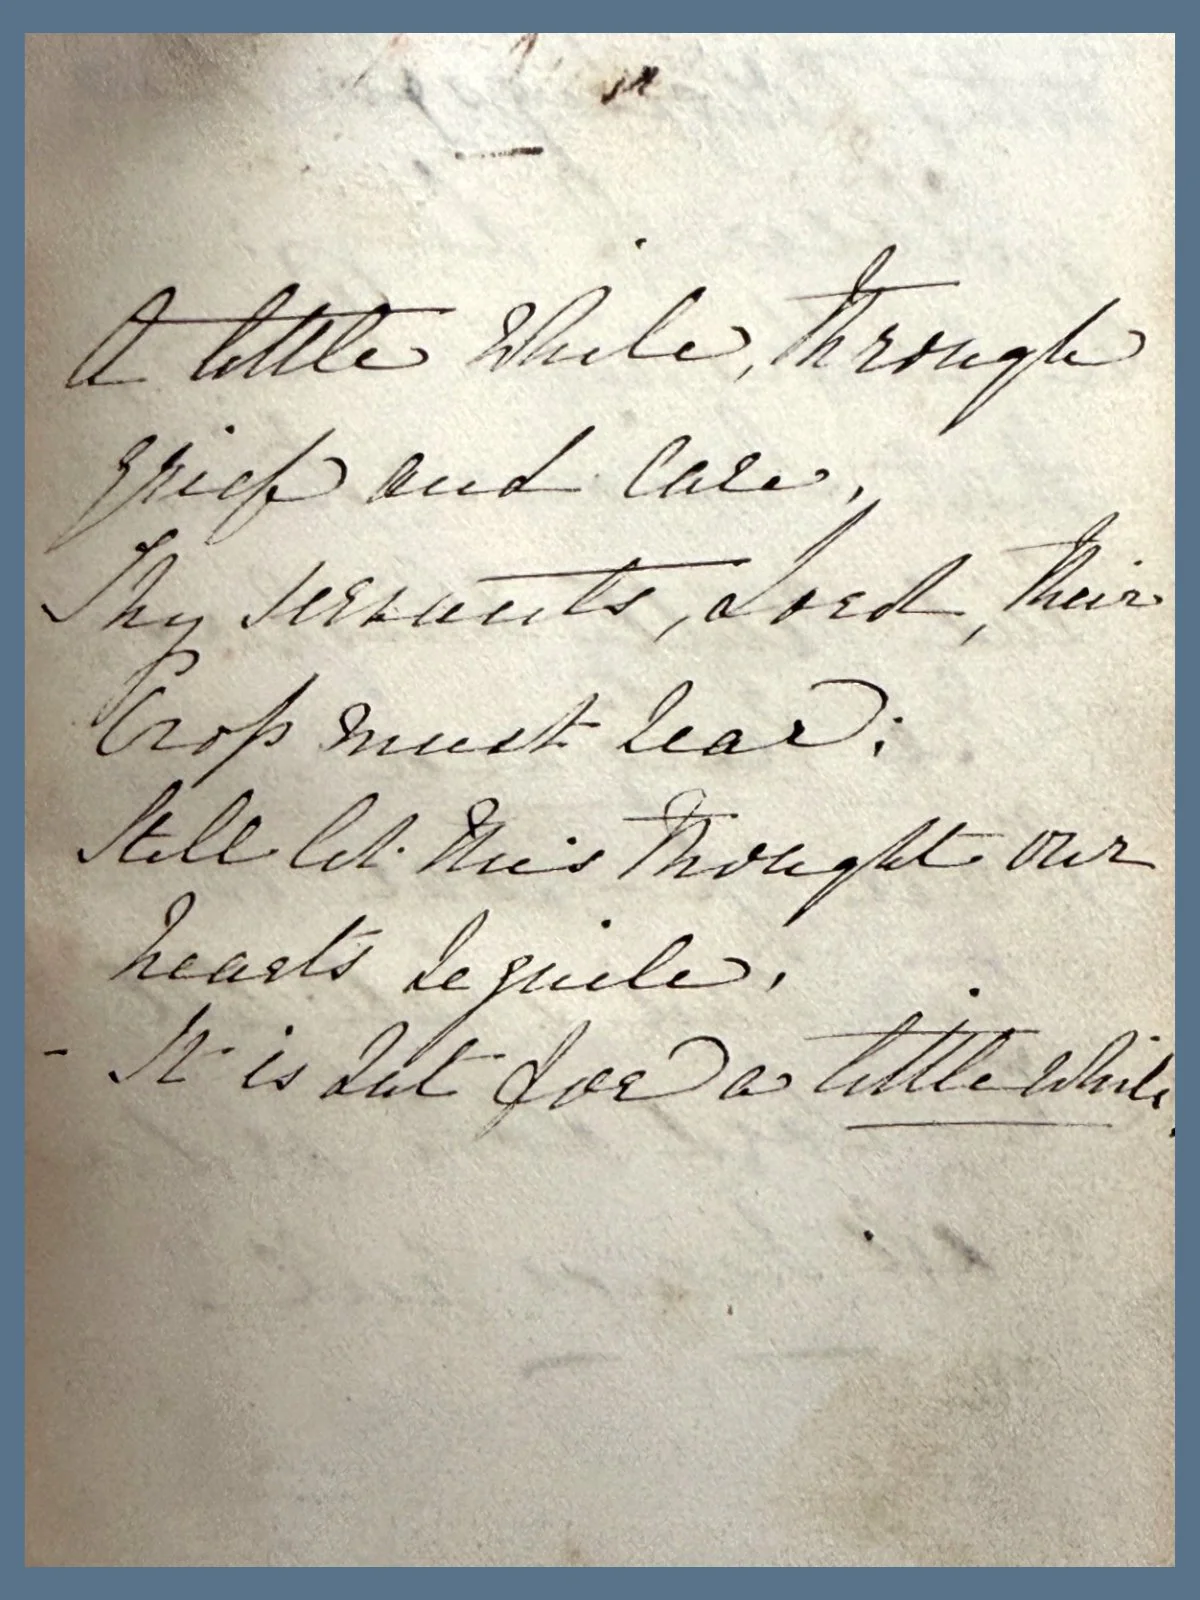 A little while, through
grief and care,
Thy servants, Lord, their
Cross must bear;
Still let this thought our
hearts beguile,
- It is but for a little while,